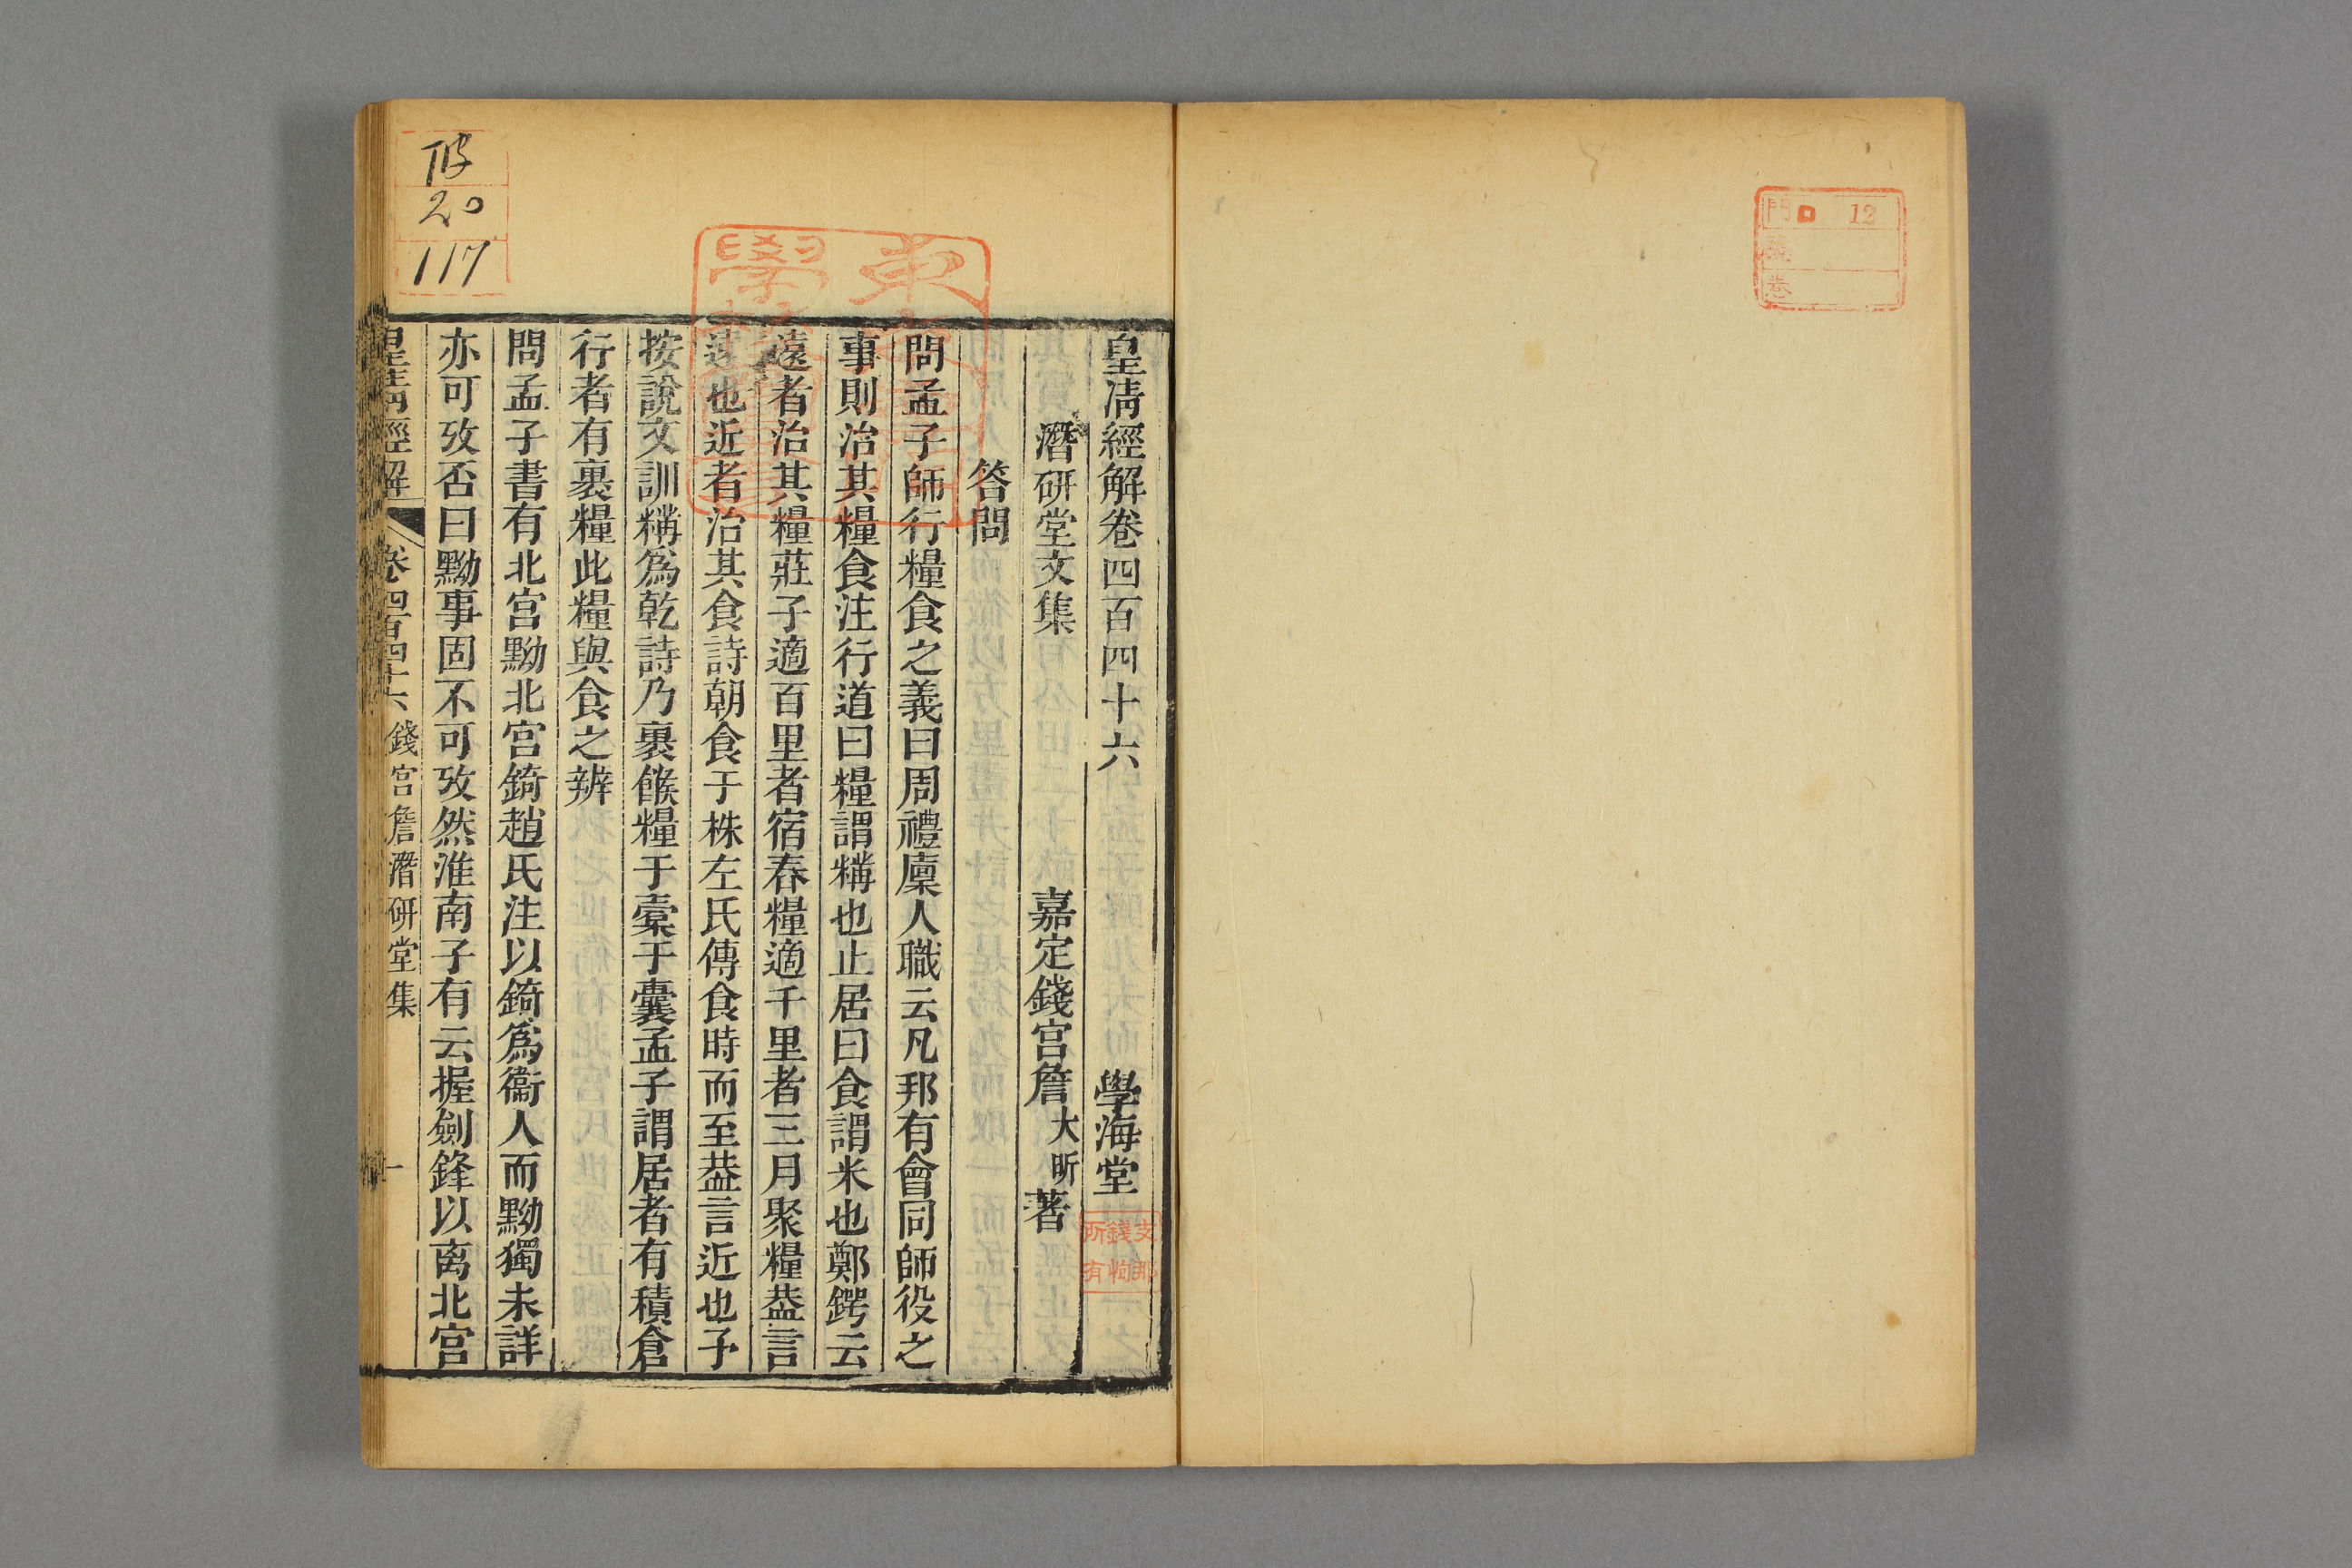 門 12
號
卷
皇清經解卷四百四十六 學海堂
潛研堂文集 嘉定錢宮詹大昕著
答問
問孟子師行糧食之義曰周禮廩人職云凡邦有會同師役之
事則治其糧食注行道曰糧謂糒也止居曰食謂米也鄭鍔云
遠者治其糧莊子適百里者宿舂糧適千里者三月聚糧葢言
遠也近者治其食詩朝食于株左氏傳食時而至葢言近也予
按說文訓糒爲乾詩乃裹餱糧于橐于囊孟子謂居者有積倉
行者有裹糧此糧與食之辨
問孟子書有北宮黝北宮錡趙氏注以錡爲衞人而黝獨未詳
亦可攷否曰黝事固不可攷然淮南子有云握劍鋒以离北宮
皇清經解 卷四百四十六 錢宮詹潛研堂集 一
支那
錢恂
所有
20
117